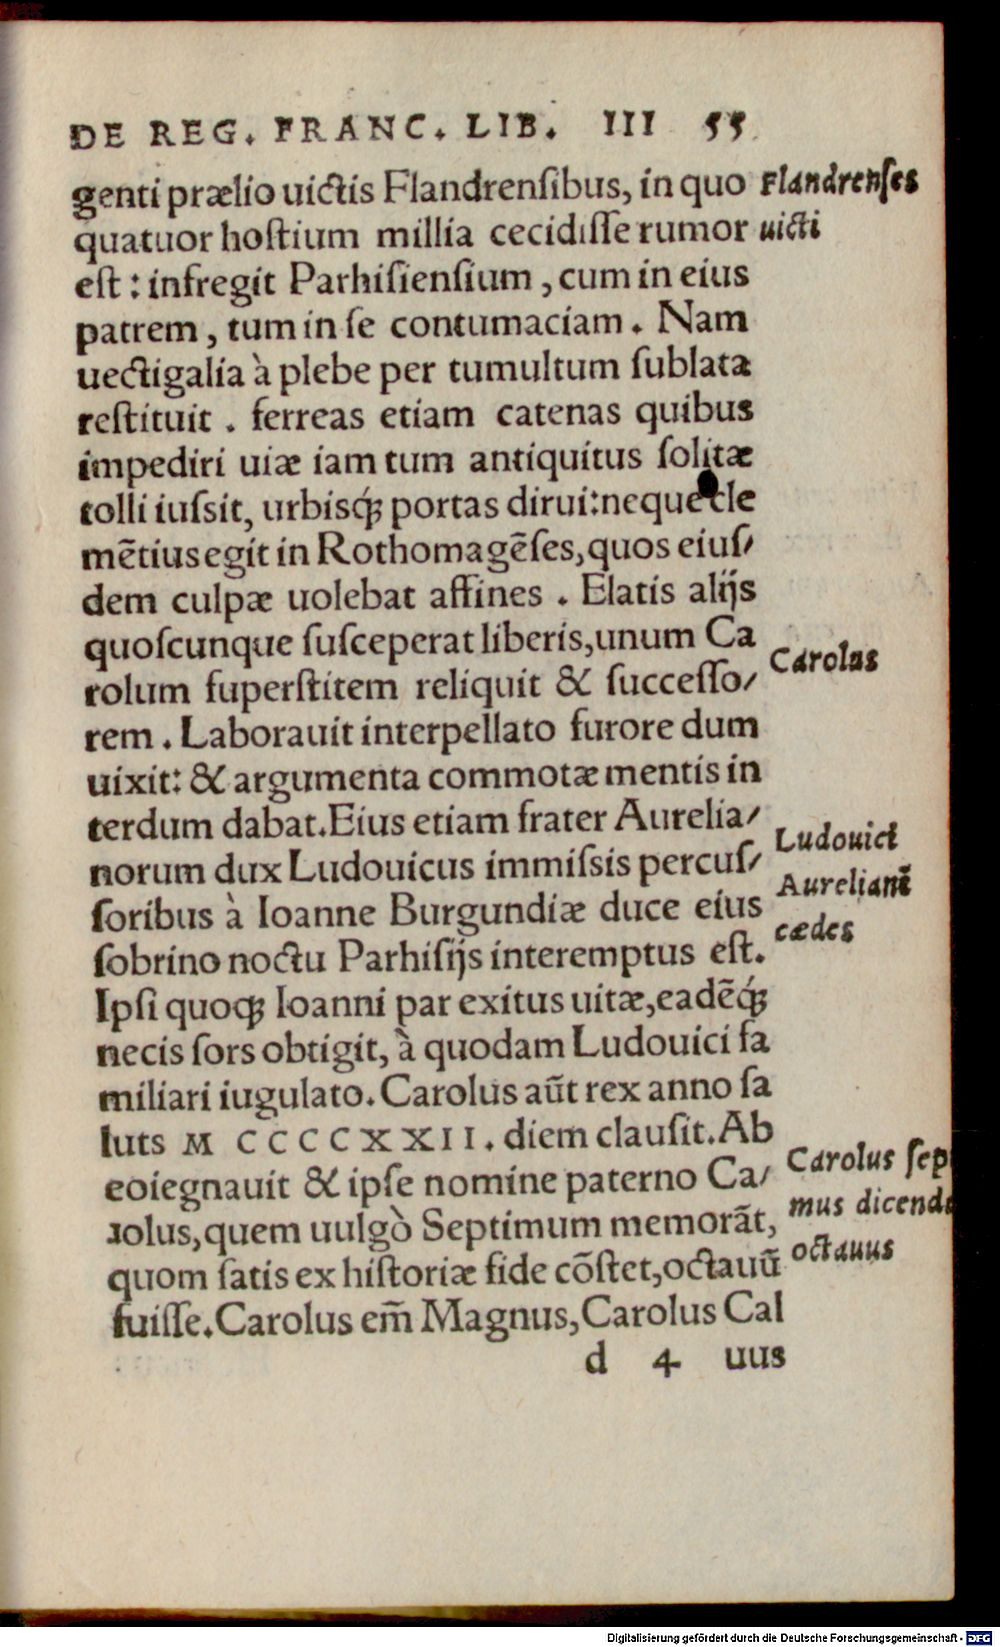 DE REG. FRANC. LIB. III 55
genti prælio uictis Flandrensibus, in quo
Flandrenses
quatuor hostium millia cecidisse rumor
uicti
est : infregit Parhisiensium , cum in eius
patrem , tum in se contumaciam . Nam
uectigalia à plebe per tumultum sublata
restituit . ferreas etiam catenas quibus
impediri uiæ iam tum antiquitus solitæ
tolli iussit, urbisq́ꝫ portas dirui:neque cle
mētius egit in Rothomagēses,quos eius/
dem culpæ uolebat affines . Elatis alijs
quoscunque susceperat liberis,unum Ca
Carolus
rolum superstitem reliquit & successo/
rem . Laborauit interpellato furore dum
uixit: & argumenta commotæ mentis in
terdum dabat.Eius etiam frater Aurelia/
Ludouici
norum dux Ludouicus immissis percus/
Aurelianē
soribus à Ioanne Burgundiæ duce eius
cædes
sobrino noctu Parhisijs interemptus est.
Ipsi quoqꝫ Ioanni par exitus uitæ,eadēq́ꝫ
necis sors obtigit, à quodam Ludouici fa
miliari iugulato. Carolus aūt rex anno sa
luts M CCCCXXII. diem clausit. Ab
eoiegnauit & ipse nomine paterno Ca/
Carolus sep
ɹolus,quem uulgò Septimum memorāt,
mus dicend
quom satis ex historiæ fide cōstet,octauū
octauus
fuisse.Carolus em̄ Magnus,Carolus Cal
d 4 uus
Digitalisierung gefördert durch die Deutsche Forschungsgemeinschaft - DFG